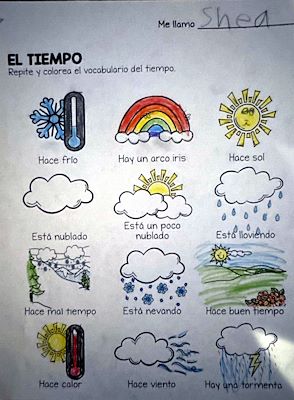 Me llamo Shea
EL TIEMPO
Repite y colorea el vocabulario del tiempo.
Hace frío
Hay un arco iris
Hace sol
Está nublado
Está un poco
nublado
Está lloviendo
Hace mal tiempo
Está nevando
Hace buen tiempo
Hace calor
Hace viento
Hay una tormenta